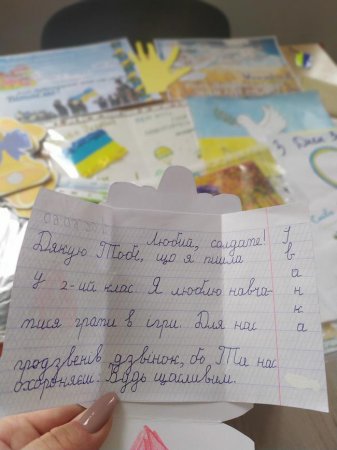 Любий, солдате!
Дякую Тобі, що я пішла
у 2-ий клас. Я люблю навча-
тися грати в ігри. Для нас
продзвенів дзвінок, бо Ти нас
охороняєш. Будь щасливим.
Іванка